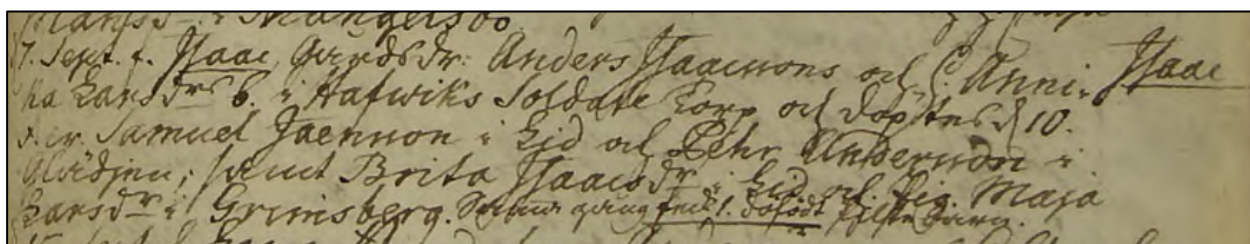 i Mangelsbo.
7. Sept. f. Isaac, Gardsdr: Anders Isaacssons och h. Anni- Isaac
ka Larsdrs b. i Hafwiks Soldate Torp och döptes d 10.
Samuel Jaensson i Lid och Pehr Andersson i
Glädjen; samt Brita Isaacsdr i Lid och pig. Maja
Larsdr i Grimsberg. gång 1. dödfödt